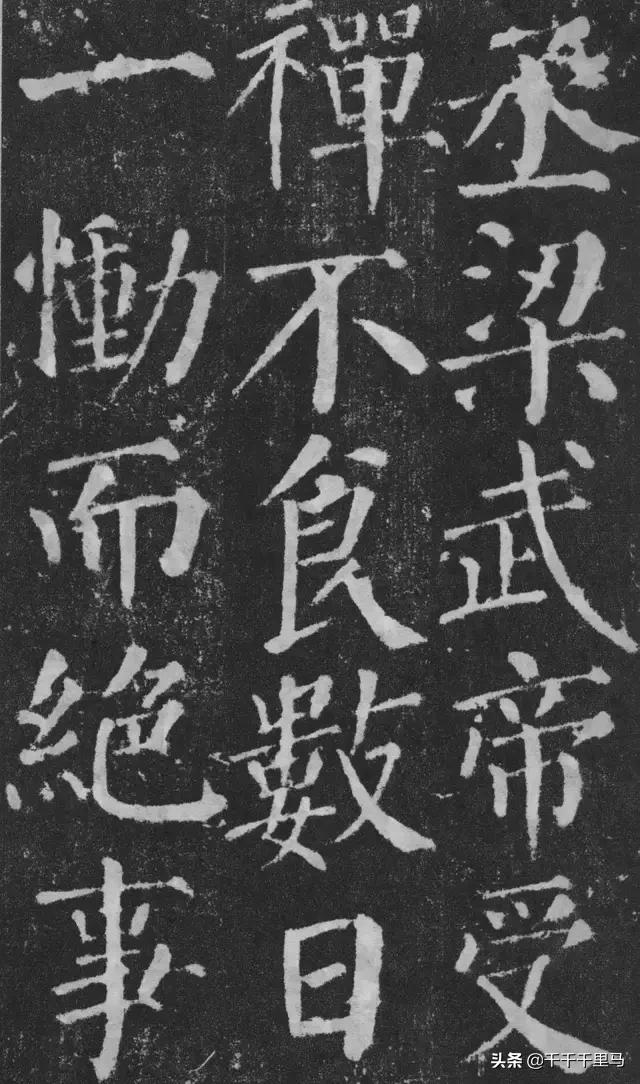 丞梁武帝受
禪不食數日
一慟而絕事
头条@千千千里马